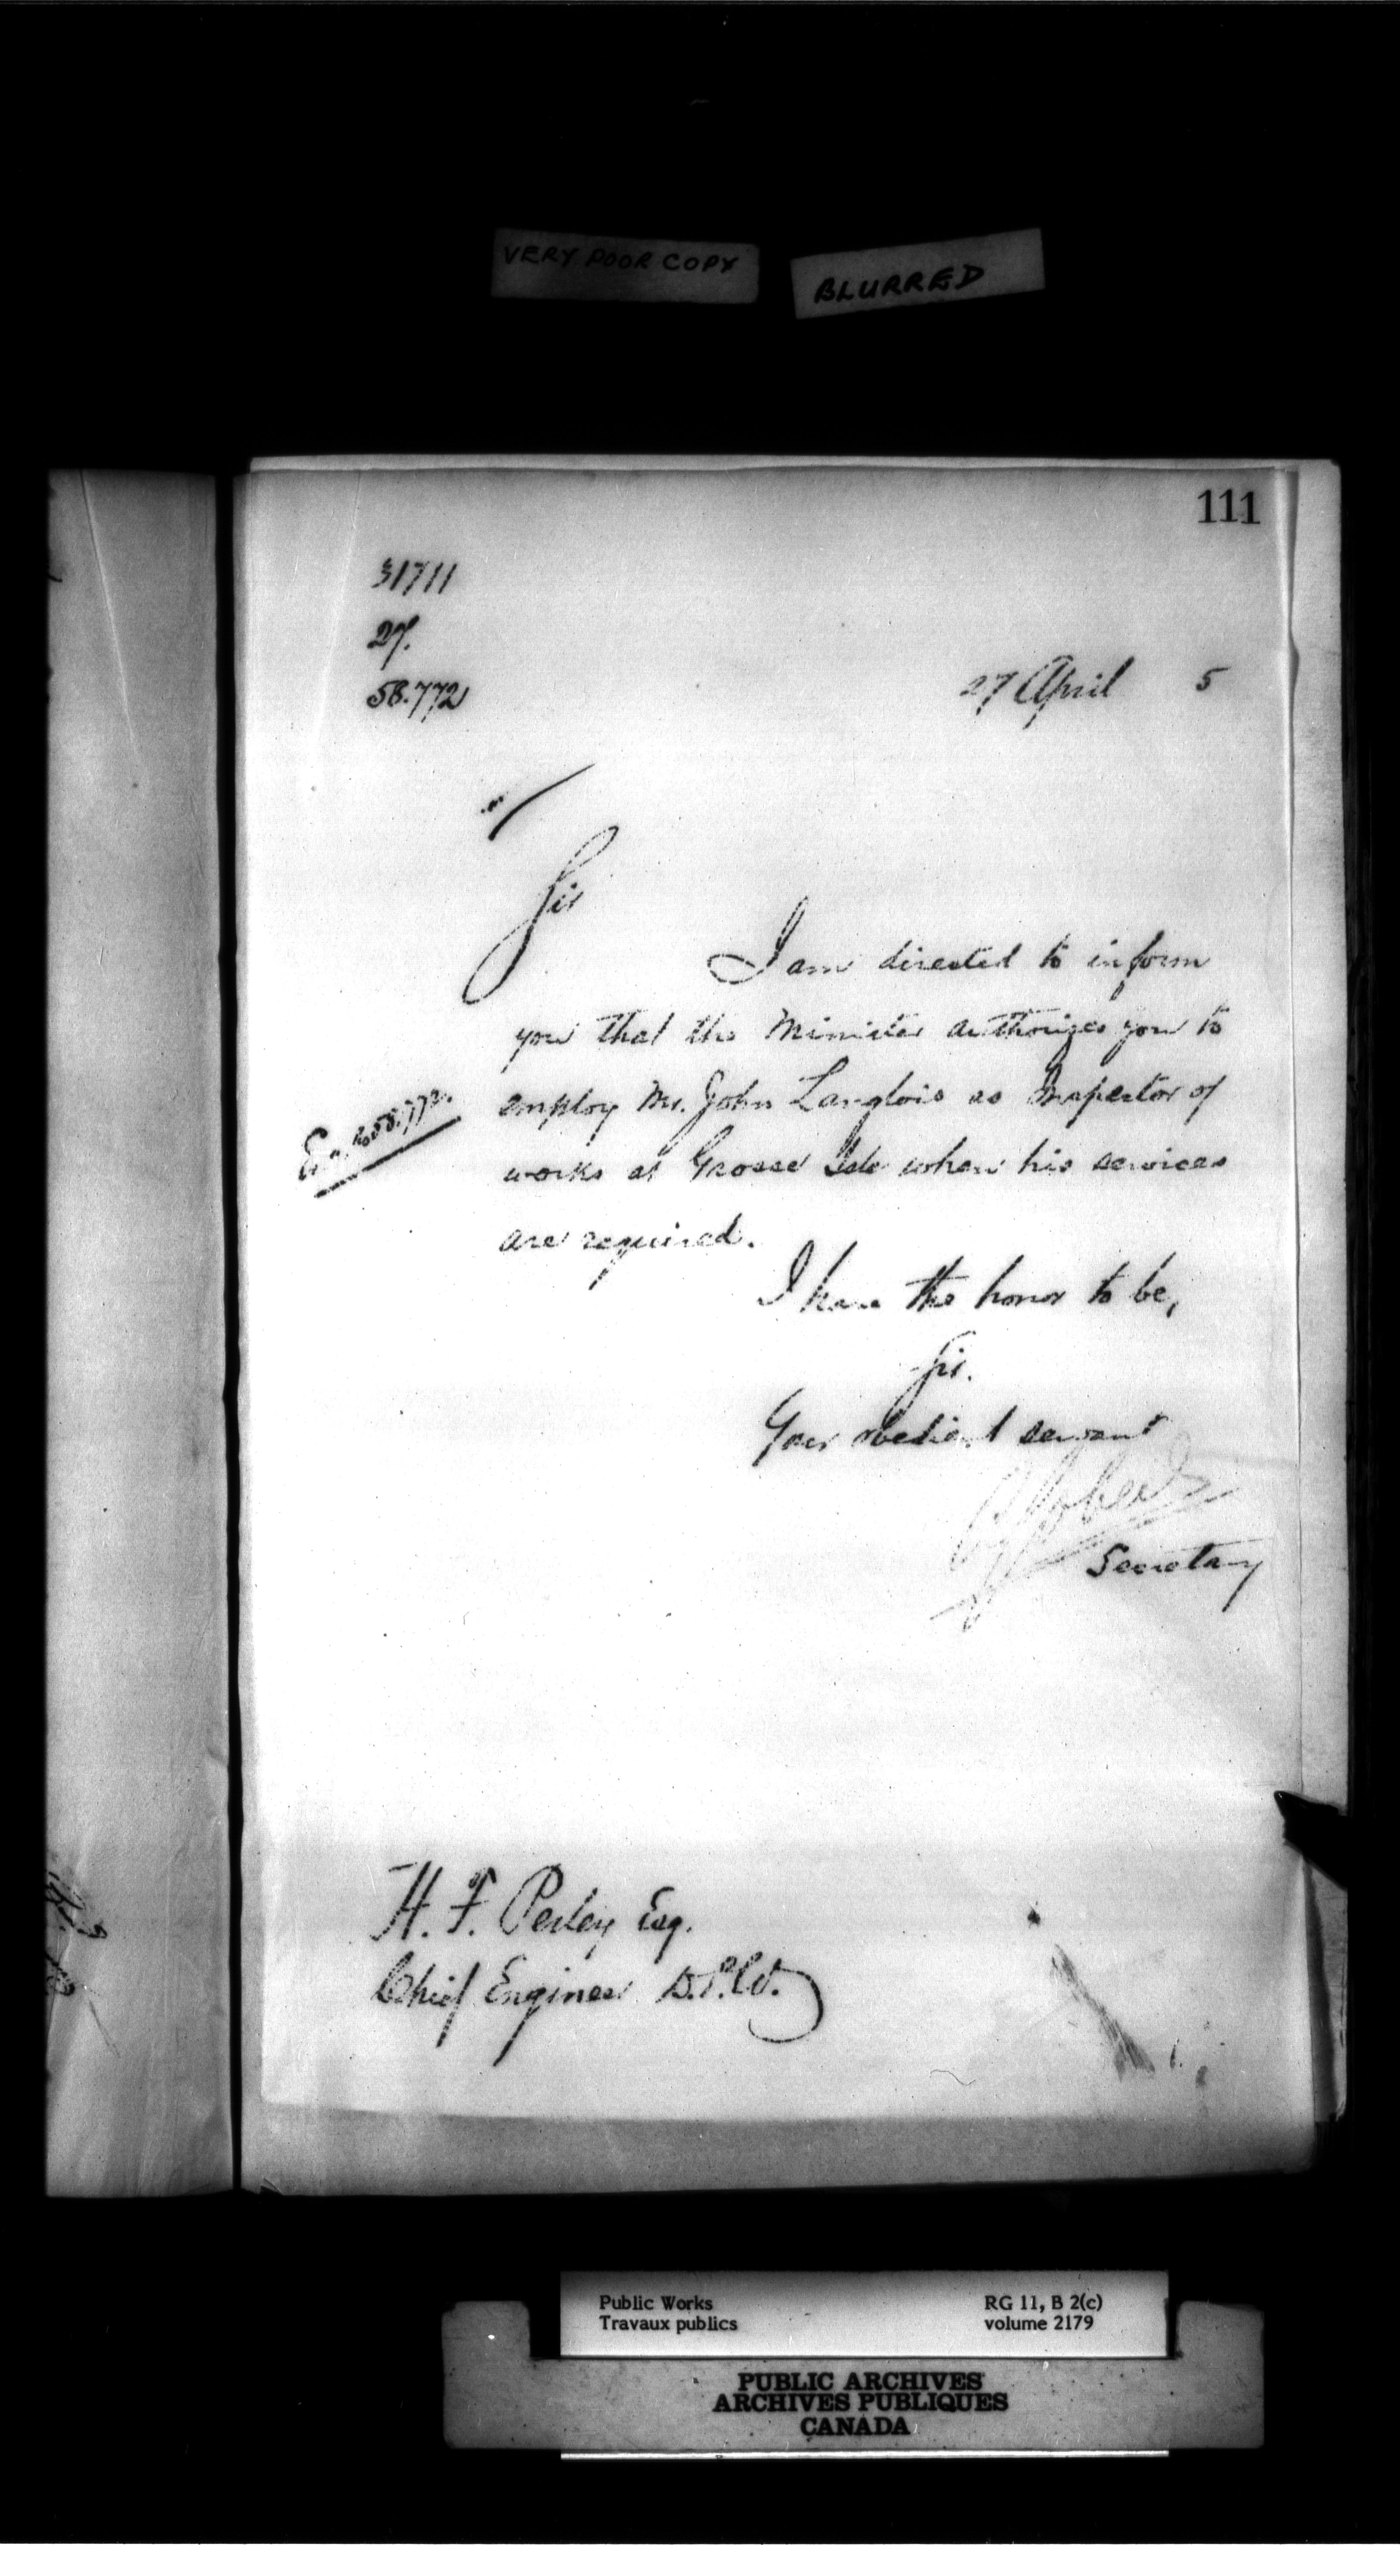 VERY POOR COPY
BLURRED
111
31711
27.
58.772
27 April 5
Sir
I am directed to inform
you that the Minister authorizes you to
employ Mr. John Langlois as Inspector of
58.772.
works at Grosse Isle when his services
are required.
I have the honor to be,
Sir.
Your obedient servant
Secretary
H. F. Perley Esq.
Chief Engineer D.P.W.
Public Works
Travaux publics
RG 11, B 2(c)
volume 2179
PUBLIC ARCHIVES
ARCHIVES PUBLIQUES
CANADA